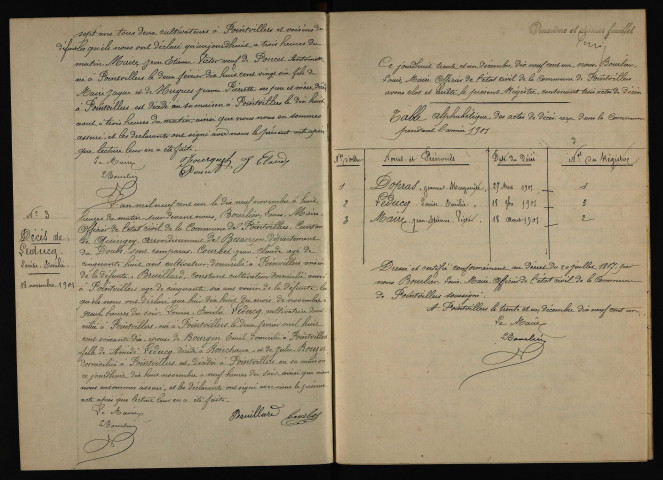 sept ans tous deux cultivateurs à Pointvillers et voisins du
défunt qu'ils nous ont déclaré qu'aujourd'hui à trois heures du
matin, Maire Jean Etienne Victor veuf de
né à Pointvillers le deux février dix huit cent vingt six fils de
Maire et de Hugues
à Pointvillers est décédé en sa maison à Pointvillers le dix huit
août à trois heures du matin, ainsi que nous nous en sommes
assuré, et les déclarants ont signé avec nous le présent acte après
que lecture leur en a été faite.
Le Maire
LBourlier
N° 3
Décès de
Péducq
Louise Emilie
18 novembre 1901
L'an mil neuf cent un le dix neuf novembre à huit
heures du matin, par devant nous, Bourlier Louis, Maire
Officier de l'état civil de la Commune de Pointvillers, Canton
de Quingey, arrondissement de Besançon, département
du Doubs, sont comparus, Courbet Jean Claude âgé de
soixante huit ans cultivateur domicilié à Pointvillers voisin
de la défunte, Bouillard, Constant cultivateur domicilié aussi
à Pointvillers âgé de cinquante six ans voisin de la défunte, les
quels nous ont déclaré que hier dix huit du mois de novembre à
neuf heures du soir Louise Emilie Péducq, cultivatrice domi
ciliée à Pointvillers née à Pointvillers le deux février mil huit
cent soixante dix, épouse de Bourgon Emile domicilié à Pointvillers
fille de Péducq décédé à et de
domiciliée à Pointvillers est décédée à Pointvillers en sa maison
ce jourd'hui dix huit novembre à neuf heures du soir, ainsi que nous
nous en sommes assuré, et les déclarants ont signé avec nous le présent
acte après que lecture leur en a été faite.
Le Maire
LBourlier
Bouillard Courbet
Deuxième et dernier feuillet
Ce jourd'hui trente et un décembre dix neuf cent un nous Bourlier
Louis, Maire Officier de l'état civil de la Commune de Pointvillers
avons clos et arrêté le présent Registre, contenant trois actes de décès
Table Alphabétique des actes de décès reçus dans la Commune
pendant l'année 1901
N° d'ordre Noms et Prénoms Date du Décès N° du Registre
1 Dopras, Jeanne Marguerite 27 Mai 1901 1
2 Péducq Louise Emilie 18 9bre 1901 3
3 Maire, Jean Etienne Victor 18 Août 1901 2
Dressé et certifié conformément au décret du 20 juillet 1807, par
nous Bourlier Louis Maire, Officier de l'état civil de la Commune
de Pointvillers soussigné
A Pointvillers le trente et un décembre dix neuf cent un.
Le Maire
LBourlier